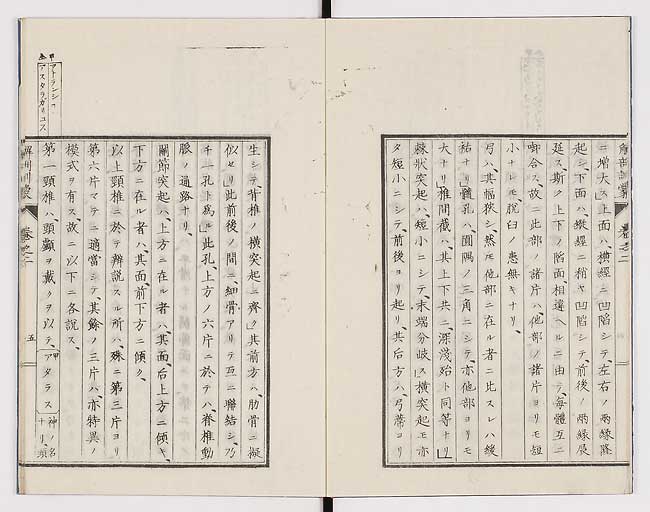 ニ增大ス」上面ハ、横經ニ凹陷シテ、左右ノ兩緣隆
起シ下面ハ、縱經ニ稍ヤ凹陷シテ、前後ノ兩緣展
延ス、斯ク上下ノ陷面相違ヘルニ由テ、每體互ニ
啣合ス、故ニ此部ノ諸片ハ、他部ノ諸片ヨリモ短
小ナレモ、脫臼ノ患無キナリ、
弓ハ、其幅狹シ、然モ他部ニ在ル者ニ比スレハ緩
祐ナリ」髓孔ハ、圓隅ノ三角ニシテ、亦他部ヨリモ
大ナリ」椎間截ハ、其上下共ニ、深淺殆ト同等ナリ」
棘狀突起ハ、短小ニシテ、末端分岐ス」橫突起モ亦
タ短小ニシテ、前後ヨリ起リ、其后方ハ、弓蒂ヨリ
解剖訓蒙 卷之二
生シテ背椎ノ橫突起ニ齊ク其前方ハ、肋骨ニ擬
似セリ」此前後ノ間ニ細骨アリテ互ニ聯結シ、乃
チ一孔ト爲ル」此孔、上方ノ六片ニ於テハ、脊椎動
脈ノ通路ナリ、
關節突起ハ、上方ニ在ル者ハ、其面、后上方ニ傾キ、
下方ニ在ル者ハ、其面前下方ニ傾ク、
以上頸椎ニ於テ辯説スル所ハ、殊ニ第三片ヨリ
第六片マテニ適當シテ、其餘ノ三片ハ、亦特異ノ
模式ヲ有ス、故ニ以下ニ各説ス、
第一頸椎ハ、頭顱ヲ戴クヲ以テ、甲アタラス 神ノ名ナリ、頭
解剖訓蒙 卷之二 五
甲アトランシュ
アスタラガリュス